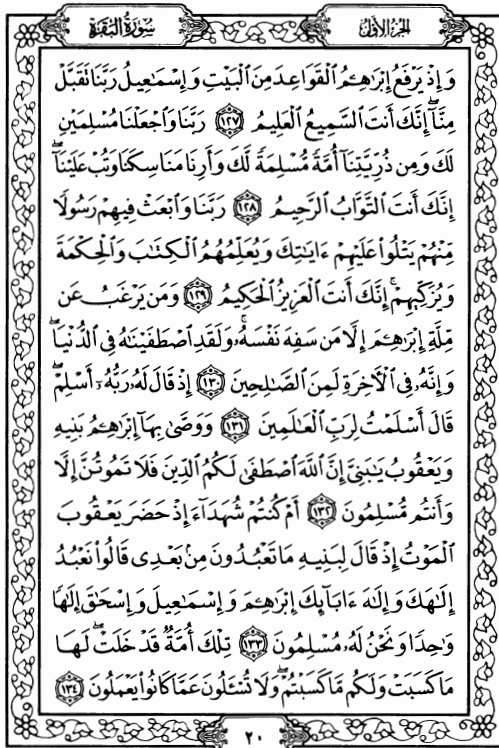 سُورَةُ البَقَرَةِ
الجُزءُ الأَوَّلُ
وَإِذْ يَرْفَعُ إِبْرَٰهِـۧمُ ٱلْقَوَاعِدَ مِنَ ٱلْبَيْتِ وَإِسْمَـٰعِيلُ رَبَّنَا تَقَبَّلْ
مِنَّآ ۖ إِنَّكَ أَنتَ ٱلسَّمِيعُ ٱلْعَلِيمُ ١٢٧ رَبَّنَا وَٱجْعَلْنَا مُسْلِمَيْنِ
لَكَ وَمِن ذُرِّيَّتِنَآ أُمَّةً مُّسْلِمَةً لَّكَ وَأَرِنَا مَنَاسِكَنَا وَتُبْ عَلَيْنَآ ۖ
إِنَّكَ أَنتَ ٱلتَّوَّابُ ٱلرَّحِيمُ ١٢٨ رَبَّنَا وَٱبْعَثْ فِيهِمْ رَسُولًا
مِّنْهُمْ يَتْلُوا۟ عَلَيْهِمْ ءَايَـٰتِكَ وَيُعَلِّمُهُمُ ٱلْكِتَـٰبَ وَٱلْحِكْمَةَ
وَيُزَكِّيهِمْ ۚ إِنَّكَ أَنتَ ٱلْعَزِيزُ ٱلْحَكِيمُ ١٢٩ وَمَن يَرْغَبُ عَن
مِّلَّةِ إِبْرَٰهِـۧمَ إِلَّا مَن سَفِهَ نَفْسَهُۥ ۚ وَلَقَدِ ٱصْطَفَيْنَـٰهُ فِى ٱلدُّنْيَا ۖ
وَإِنَّهُۥ فِى ٱلْـَٔاخِرَةِ لَمِنَ ٱلصَّـٰلِحِينَ ١٣٠ إِذْ قَالَ لَهُۥ رَبُّهُۥٓ أَسْلِمْ ۖ
قَالَ أَسْلَمْتُ لِرَبِّ ٱلْعَـٰلَمِينَ ١٣١ وَوَصَّىٰ بِهَآ إِبْرَٰهِـۧمُ بَنِيهِ
وَيَعْقُوبُ يَـٰبَنِىَّ إِنَّ ٱللَّهَ ٱصْطَفَىٰ لَكُمُ ٱلدِّينَ فَلَا تَمُوتُنَّ إِلَّا
وَأَنتُم مُّسْلِمُونَ ١٣٢ أَمْ كُنتُمْ شُهَدَآءَ إِذْ حَضَرَ يَعْقُوبَ
ٱلْمَوْتُ إِذْ قَالَ لِبَنِيهِ مَا تَعْبُدُونَ مِنۢ بَعْدِى قَالُوا۟ نَعْبُدُ
إِلَـٰهَكَ وَإِلَـٰهَ ءَابَآئِكَ إِبْرَٰهِـۧمَ وَإِسْمَـٰعِيلَ وَإِسْحَـٰقَ إِلَـٰهًا
وَٰحِدًا وَنَحْنُ لَهُۥ مُسْلِمُونَ ١٣٣ تِلْكَ أُمَّةٌ قَدْ خَلَتْ ۖ لَهَا
مَا كَسَبَتْ وَلَكُم مَّا كَسَبْتُمْ ۖ وَلَا تُسْـَٔلُونَ عَمَّا كَانُوا۟ يَعْمَلُونَ ١٣٤
٢٠